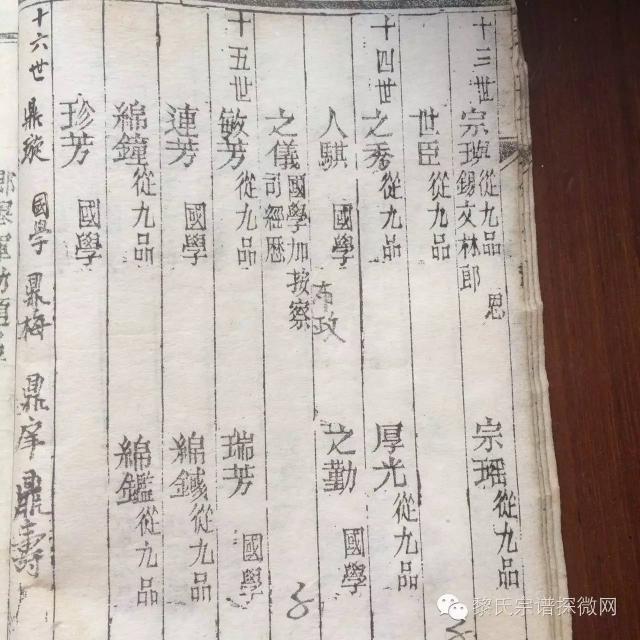 十三世 宗璵 從九品 錫文林郎 恩 宗瑶 從九品
世臣 從九品
十四世 之秀 從九品 厚光 從九品
人騏 國學 之勤 國學
之儀 國學加按察司經歷 布政
十五世 敏芳 從九品 瑞芳 國學
連芳 國學 綿鋮 從九品
綿鐘 從九品 綿鑑 從九品
珍芳 國學
十六世 鼎璇 國學 鼎梅 鼎 鼎壽
黎氏宗谱探微网